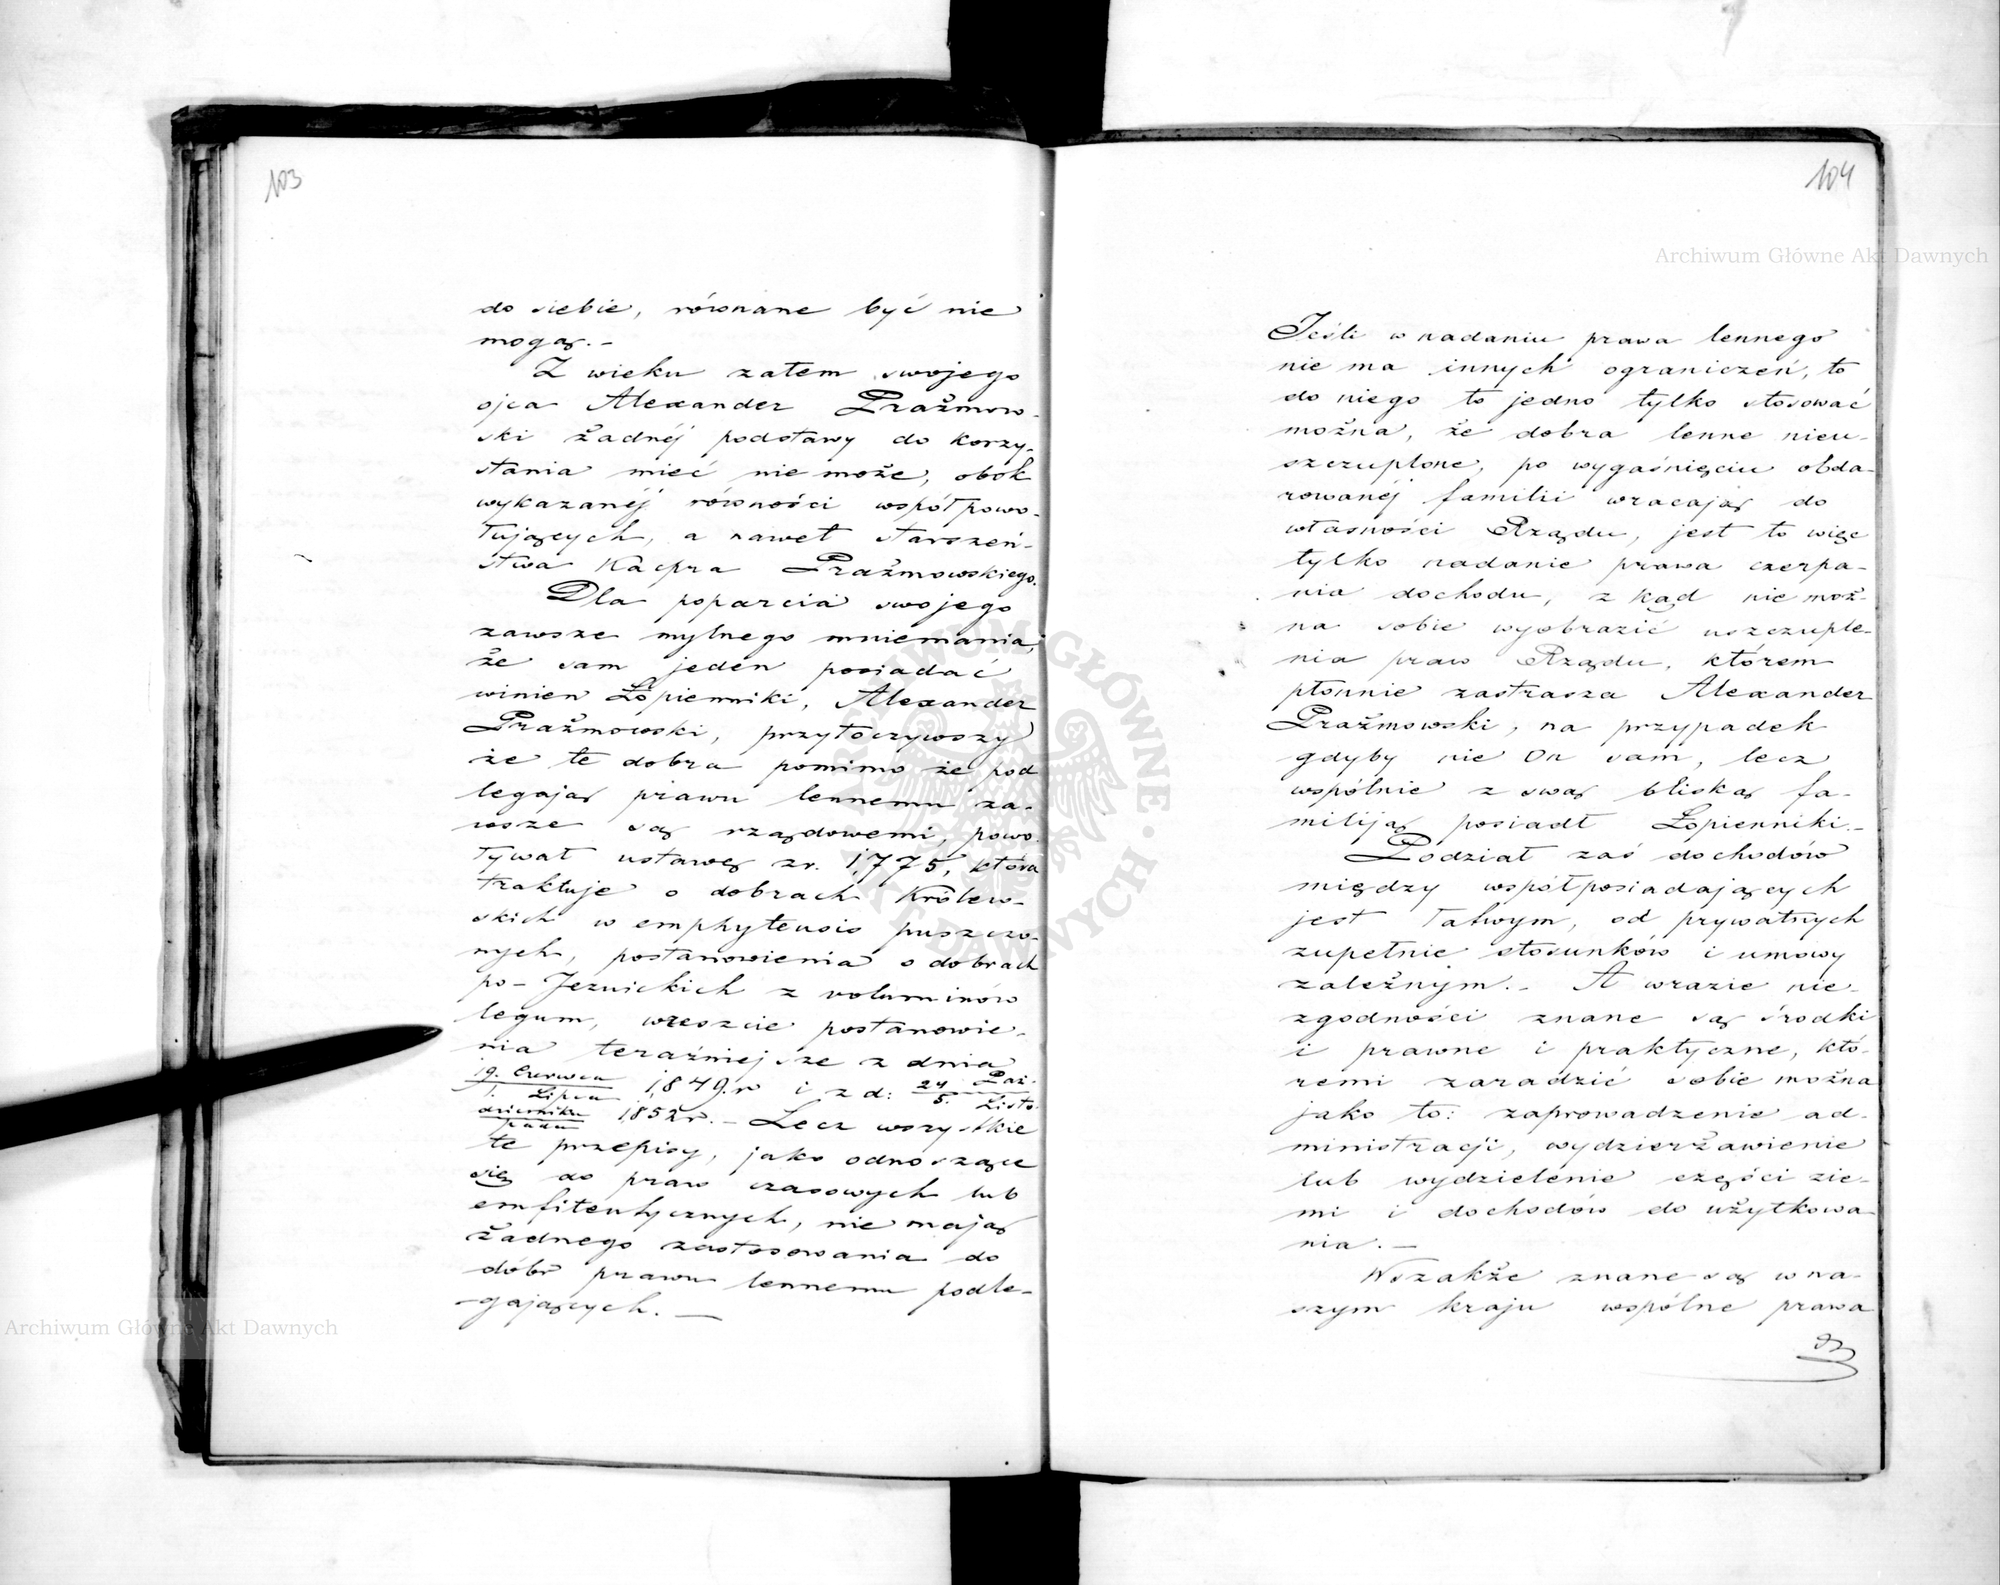 103
do siebie, równane być nie
mogą. –
Z wieku zatem swojego
ojca Alexander Prażmow-
ski żadnéj podstawy do korzy-
stania mieć nie może, obok
wykazanéj równości współpowo-
łujących, a nawet starszeń-
stwa Kacpra Prażmowskiego.
Dla poparcia swojego
zawsze mylnego mniemania,
że sam jeden posiadać
winien Łopienniki, Alexander
Prażmowski, przytoczywszy
że te dobra pomimo że pod
legają prawu lennemu za-
wsze są rządowemi, powo-
ływał ustawę zr. 1775, która
traktuje o dobrach Królew-
skich w emphyteusis puszczo-
nych, postanowienia o dobrach
po-Jezuickich z voluminów
legum, wreszcie postanowie-
nia teraźniejsze z dnia
19. Czerwca / 1. Lipca 1849.r i z d: 24 Paź- / 5. Listo-
dziernika / pada 1852r. – Lecz wszystkie
te przepisy, jako odnoszące
się do praw czasowych lub
emfiteutycznych, nie mają
żadnego zastosowania do
dóbr prawu lennemu podle-
gających. —
104
Jeśli w nadaniu prawa lennego
nie ma innych ograniczeń, to
do niego to jedno tylko stosować
można, że dobra lenne nieu-
szczuplone, po wygaśnięciu obda-
rowanéj familii wracają do
własności Rządu, jest to więc
tylko nadanie prawa czerpa-
nia dochodu, z kąd nie moż-
na sobie wyobrazić uszczuple-
nia praw Rządu, którem
płonnie zastrasza Alexander
Prażmowski, na przypadek
gdyby nie On sam, lecz
wspólnie z swą bliską fa-
miliją posiadł Łopienniki. –
Podział zaś dochodów
między współposiadających
jest łatwym, od prywatnych
zupełnie stosunków i umowy
zależnym. – A w razie nie-
zgodności znane są środki
i prawne i praktyczne, któ-
remi zaradzić sobie można
jako to: zaprowadzenie ad-
ministracji, wydzierżawienie
lub wydzielenie części zie-
mi i dochodów do użytkowa-
nia. —
Wszakże znane są w na-
szym kraju wspólne prawa
Archiwum Główne Akt Dawnych
Archiwum Główne Akt Dawnych
ARCHIWUM GŁÓWNE AKT DAWNYCH